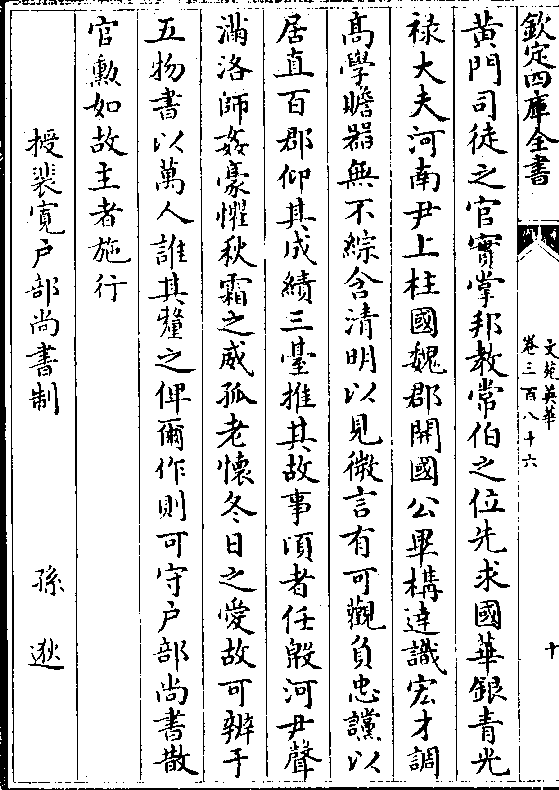 欽定四庫全書
文苑英華
卷三百八十六
十
黃門司徒之官實掌邦教常伯之位先求國華銀青光
祿大夫河南尹上柱國魏郡開國公畢構達識宏才調
髙學贍器無不綜含清明以見微言有可觀負忠讜以
居直百郡仰其成績三臺推其故事頃者任殿河尹聲
滿洛師姦豪懼秋霜之威孤老懷冬日之愛故可辨于
五物書以萬人誰其釐之俾爾作則可守户部尚書散
官勲如故主者施行
授裴寛户部尚書制 孫逖